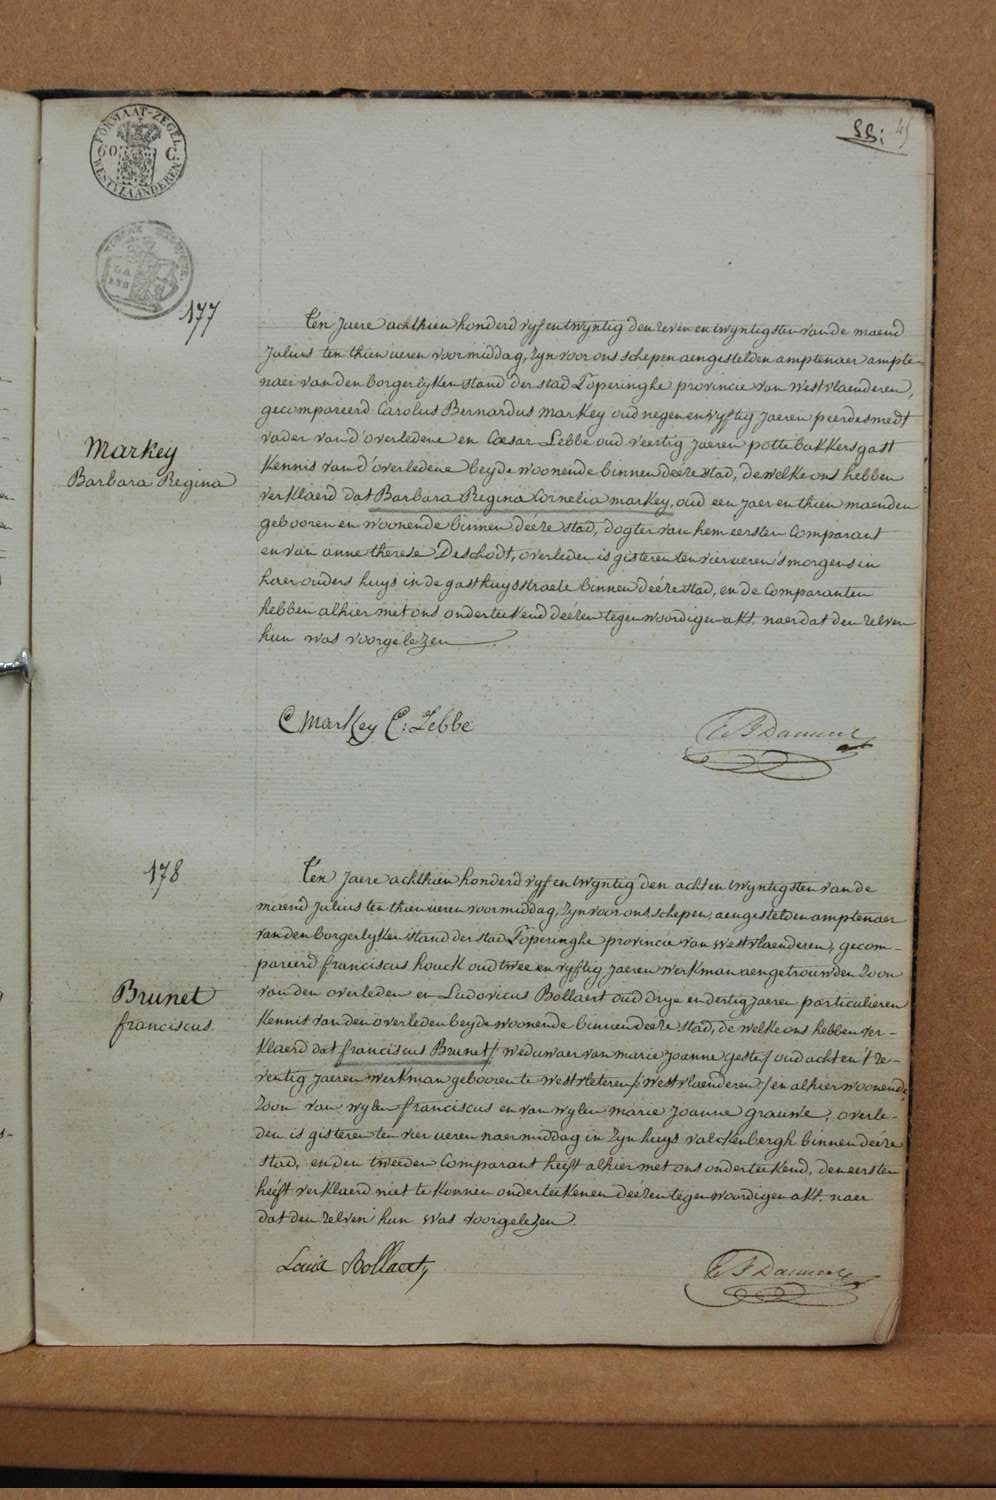 FORMAAT-ZEGEL
60 C.
WESTVLAANDEREN
SS: 45
177
Ten Jaere achthien honderd vyf en twyntig den zeven en twyntigsten van de maend
Julius ten thien ueren voormiddag, zyn voor ons schepen aengestelden amptenaer ampte-
naer van den borgerlyken stand der stad Poperinghe provincie van westvlaenderen,
gecompareerd Carolus Bernardus Markey oud negen en vyftig jaeren peerdesmedt
vader van d'overledene en Cæsar Lebbe oud veertig jaeren pottebakkersgast
Kennis van d'overledene beyde woonende binnen deéze stad, de welke ons hebben
verklaerd dat Barbara Regina Cornelia markey, oud een jaer en thien maenden
gebooren en woonende binnen deéze stad, dogter van hem eersten Comparant
en van anne therese Deschodt, overleden is gisteren ten vier ueren 's morgens in
haer ouders huys in de gasthuysstraete binnen deéze stad, en de Comparanten
hebben alhier met ons onderteekend deézen tegenwoordigen akt. naer dat den zelven
hun was voorgelezen.
Markey
Barbara Regina
C Markey C: Lebbe
178
Ten Jaere achthien honderd vyf en twyntig den acht en twyntigsten van de
maend Julius ten thien ueren voormiddag, zyn voor ons, schepen, aengestelden amptenaer
van den borgerlyken stand der stad Poperinghe provincie van westvlaenderen, gecom-
pareerd franciscus houck oud twee en vyftig jaeren werkman aengetrouwden zoon
van den overleden en Ludovicus Bollaert oud drye en dertig jaeren particulieren
Kennis van den overleden beyde woonende binnen deéze stad, de welke ons hebben ver-
klaerd dat franciscus Brunet / weduwaer van marie Joanne geste / oud acht en 't ze-
ventig jaeren werkman gebooren te westvleteren /: westvlaenderen :/ en alhier woonende
zoon van wylen franciscus en van wylen marie Joanne grauwe, overle-
den is gisteren ten vier ueren naermiddag in zyn huys valckenbergh binnen deéze
stad, en den tweeden Comparant heeft alhier met ons onderteekend, den eersten
heeft verklaerd niet te konnen onderteekenen deézen tegenwoordigen akt. naer
dat den zelven hun was voorgelezen.
Brunet
franciscus.
Louis Bollaert,